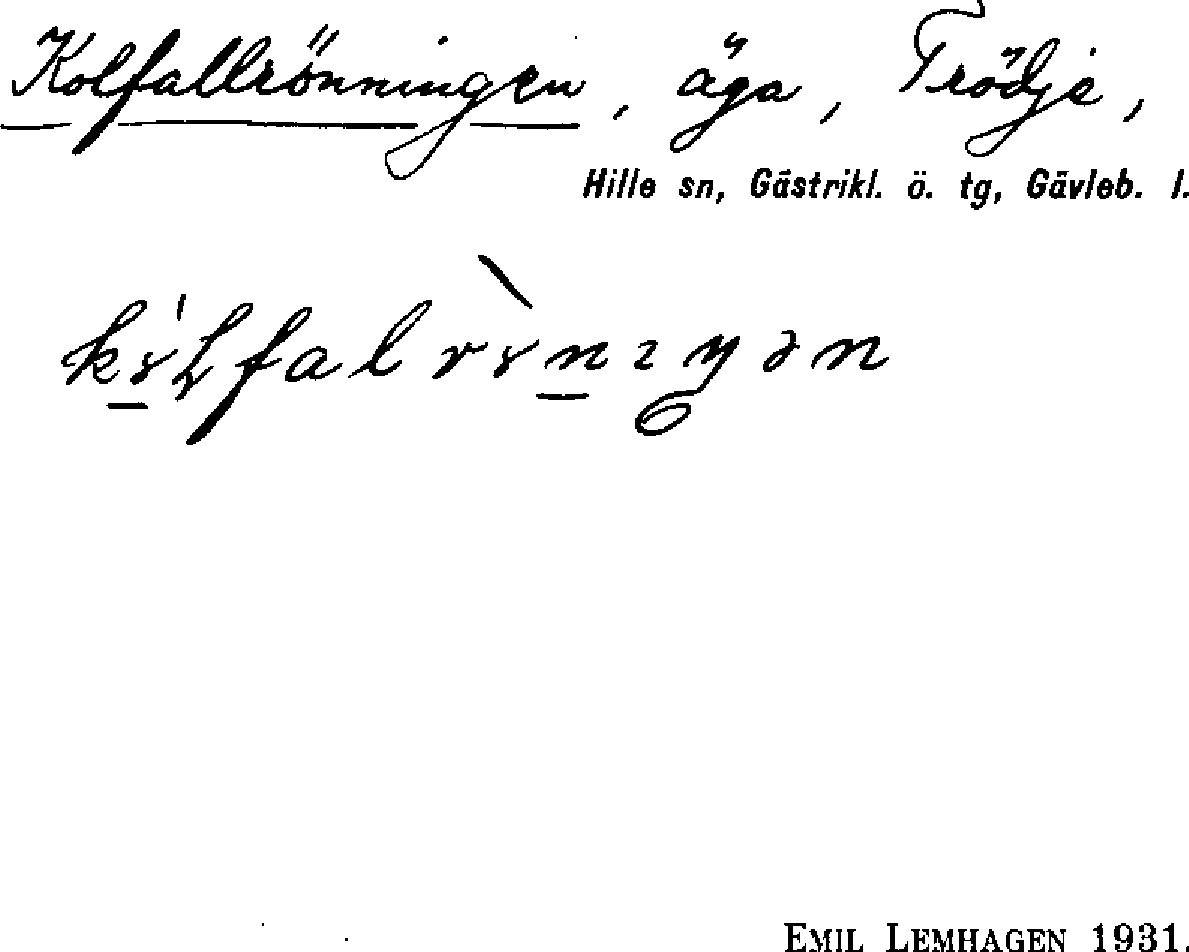 Kolfallrönningen, äga, Trödje,
Hille sn, Gästrikl. ö. tg, Gävleb. l.
EMIL LEMHAGEN 1931.